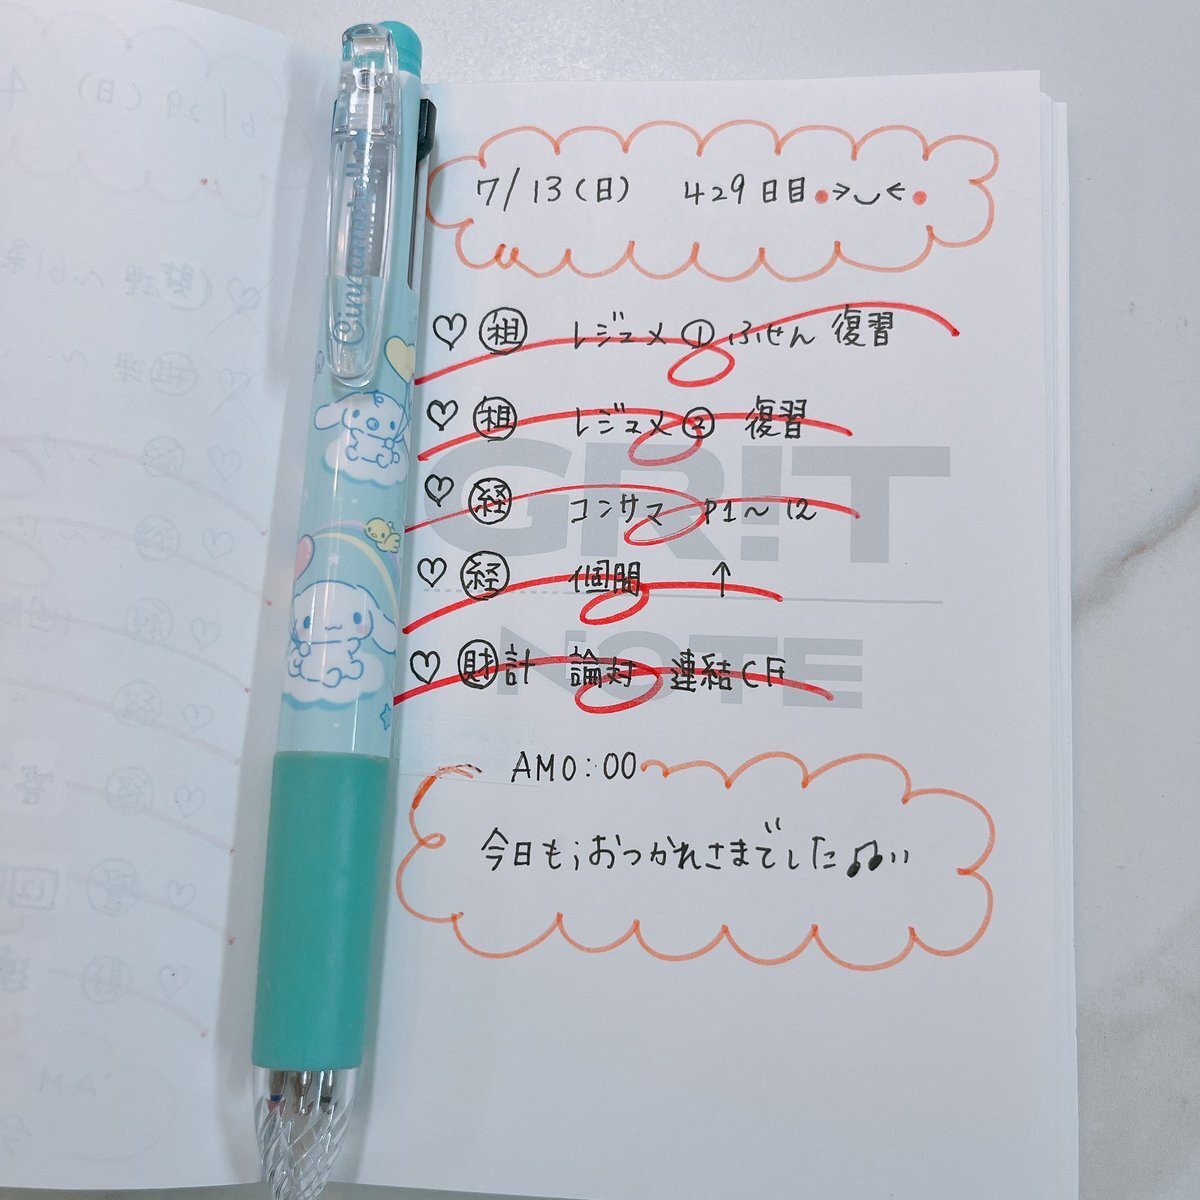 7/13(日) 429日目 •>◡<•
♡ 租 レジュメ① ふせん 復習
♡ 租 レジュメ② 復習
♡ 経 コンサマ P1〜12
♡ 経 個問 ↑
♡ 財計 論対 連結CF
AM0:00
今日も;おつかれさまでした♫"
Cinnamoroll
GRIT
NOTE
6/29(日)